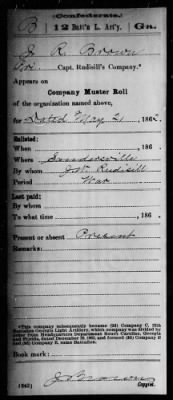 Confederate.
B 12 Batt'n L. Art'y. Ga.
J R Brown
Pvt, Capt. Rudisill's Company.*
Appears on
Company Muster Roll
of the organization named above,
for Dated May 21, 1862.
Enlisted:
When , 186 .
Where Sandersville
By whom J.W. Rudisill
Period War
Last paid:
By whom
To what time , 186 .
Present or absent Present
Remarks:
*This company subsequently became (2d) Company C, 12th
Battalion Georgia Light Artillery, which company was divided by
Georgia and Florida, dated December 19, 1862, and formed (2d) Company
Book mark:
(642)
Copyist.